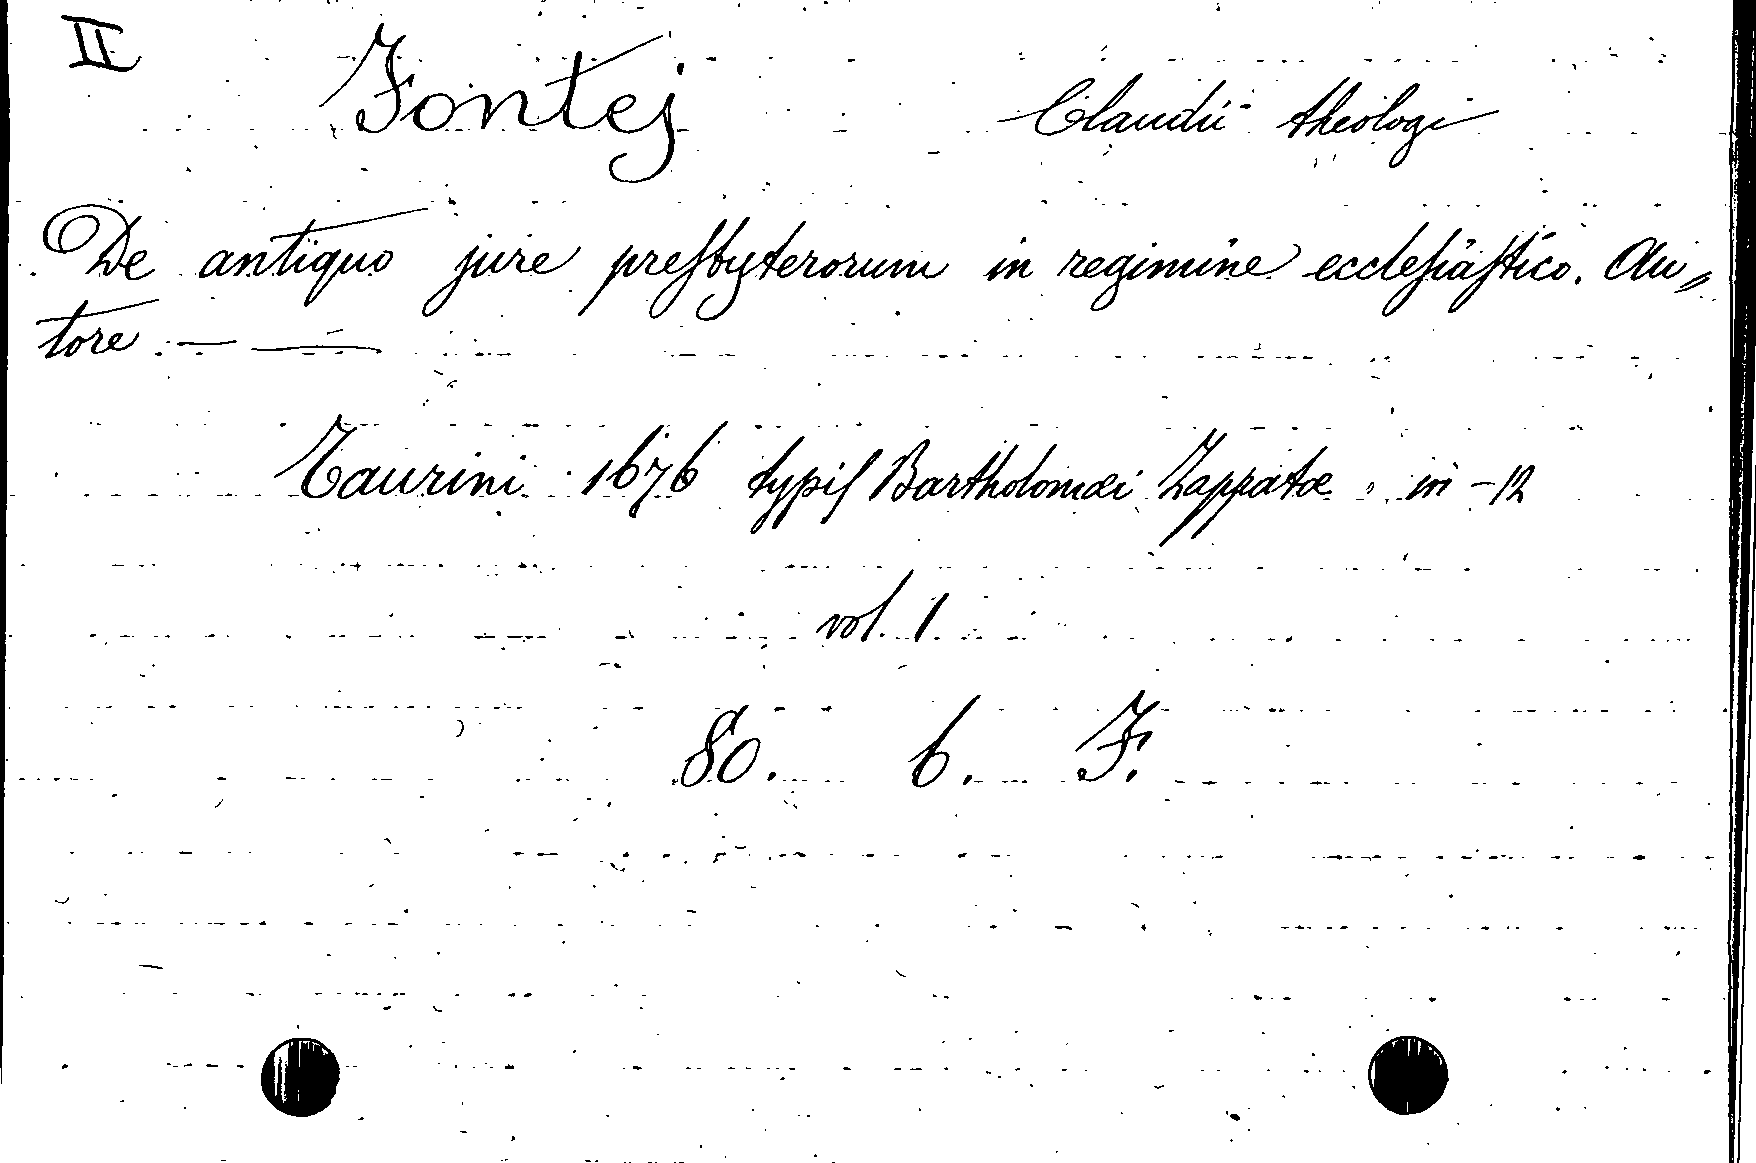 II
Fontej Claudii theologi
De antiquo jure preſbyterorum in regimine eccleſiaſtico. Au„
tore — —
Taurini 1676 typiſ Bartholomæi Zappatæ in-12
vol. 1.
80. 6. F.